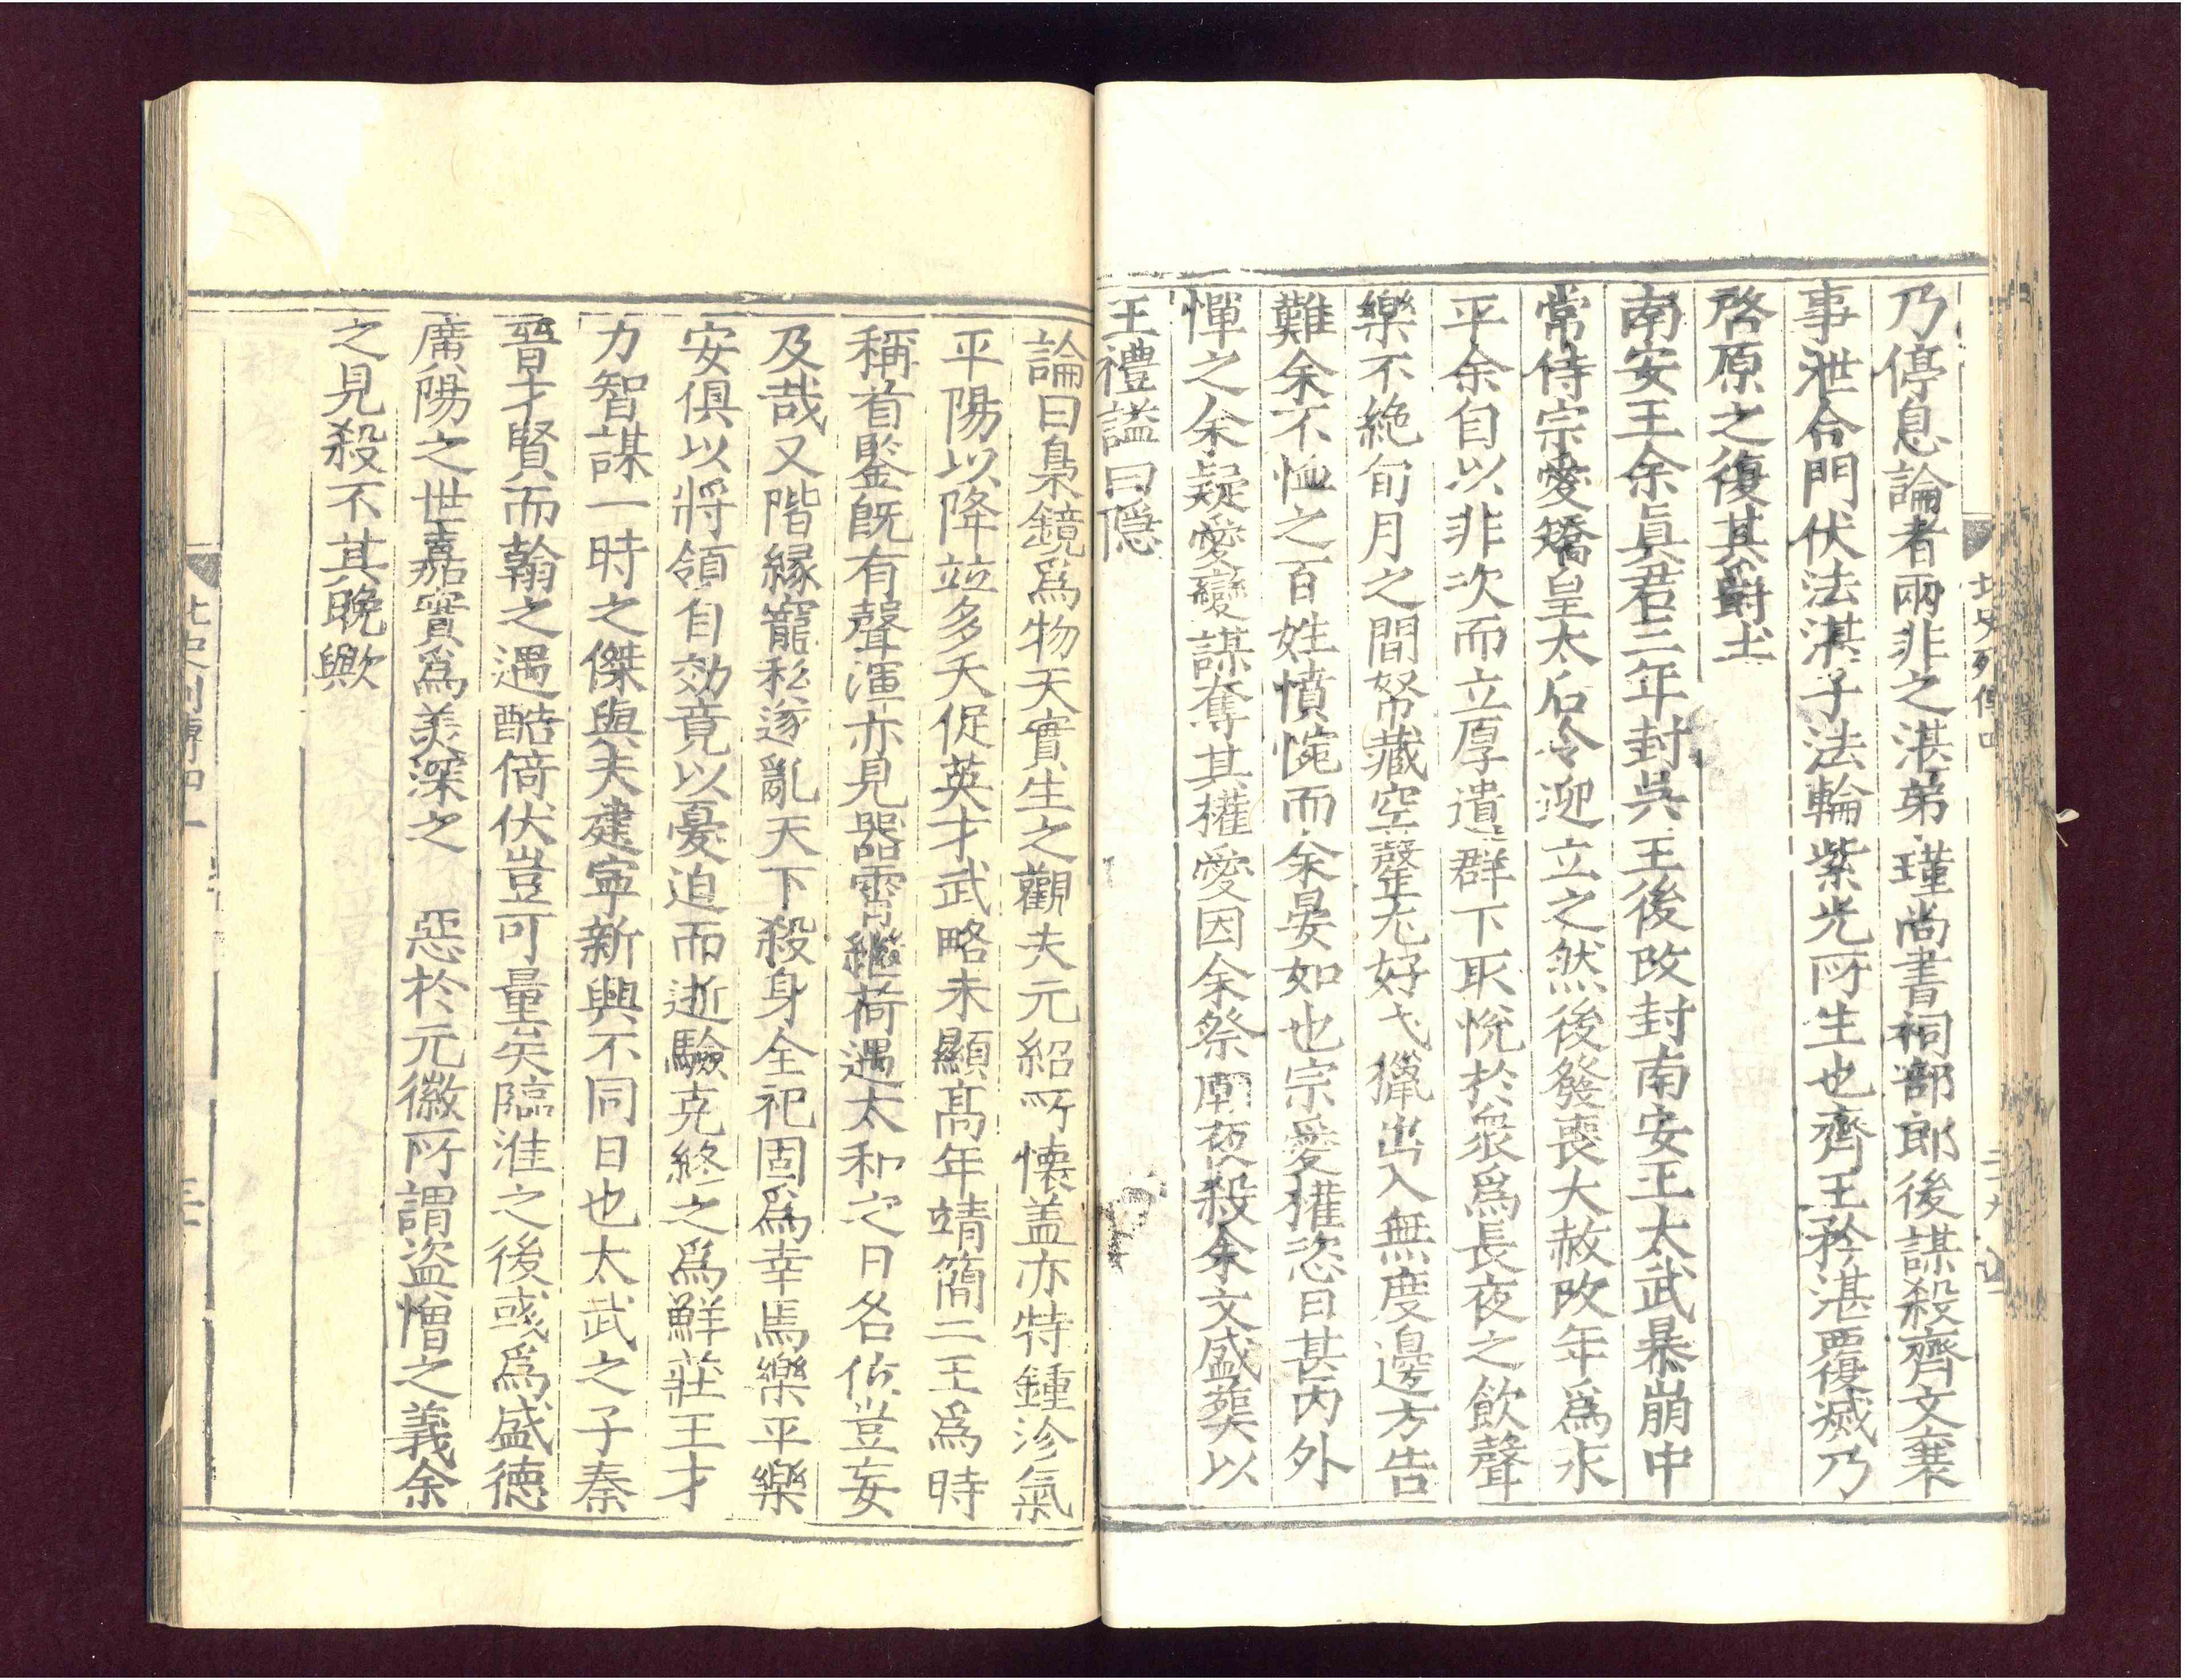 乃停息論者兩非之湛弟瑾尚書祠部郎後謀殺齊文襄
事泄合門伏法湛子法輪紫光所生也齊王矜湛覆滅乃
啓原之復其爵土
南安王余眞君三年封吳王後改封南安王太武暴崩中
常侍宗愛矯皇太后令迎立之然後發喪大赦改年爲永
平余自以非次而立厚遺群下取悅於衆爲長夜之飮聲
樂不絶旬月之間帑藏空罄尤好弋獵出入無度邊方告
難余不恤之百姓憤惋而余晏如也宗愛權恣日甚內外
憚之余疑愛變謀奪其權愛因余祭廟夜殺余文盛葬以
王禮諡曰隱
論曰梟鏡爲物天實生之觀夫元紹所懷盖亦特鍾沴氣
平陽以降竝多夭促英才武略未顯髙年靖簡二王爲時
稱首鑒旣有聲渾亦見器霄繼荷遇太和之日名位豈妄
及哉又階緣寵私遂亂天下殺身全祀固爲幸焉樂平樂
安俱以將領自効竟以憂迫而逝驗克終之爲鮮莊王才
力智謀一時之傑與夫建寧新興不同日也太武之子秦
晉才賢而翰之遇酷倚伏豈可量矣臨淮之後彧爲盛德
廣陽之世嘉實爲美深之　惡於元徽所謂盜憎之義余
之見殺不其晚歟
北史列傳四